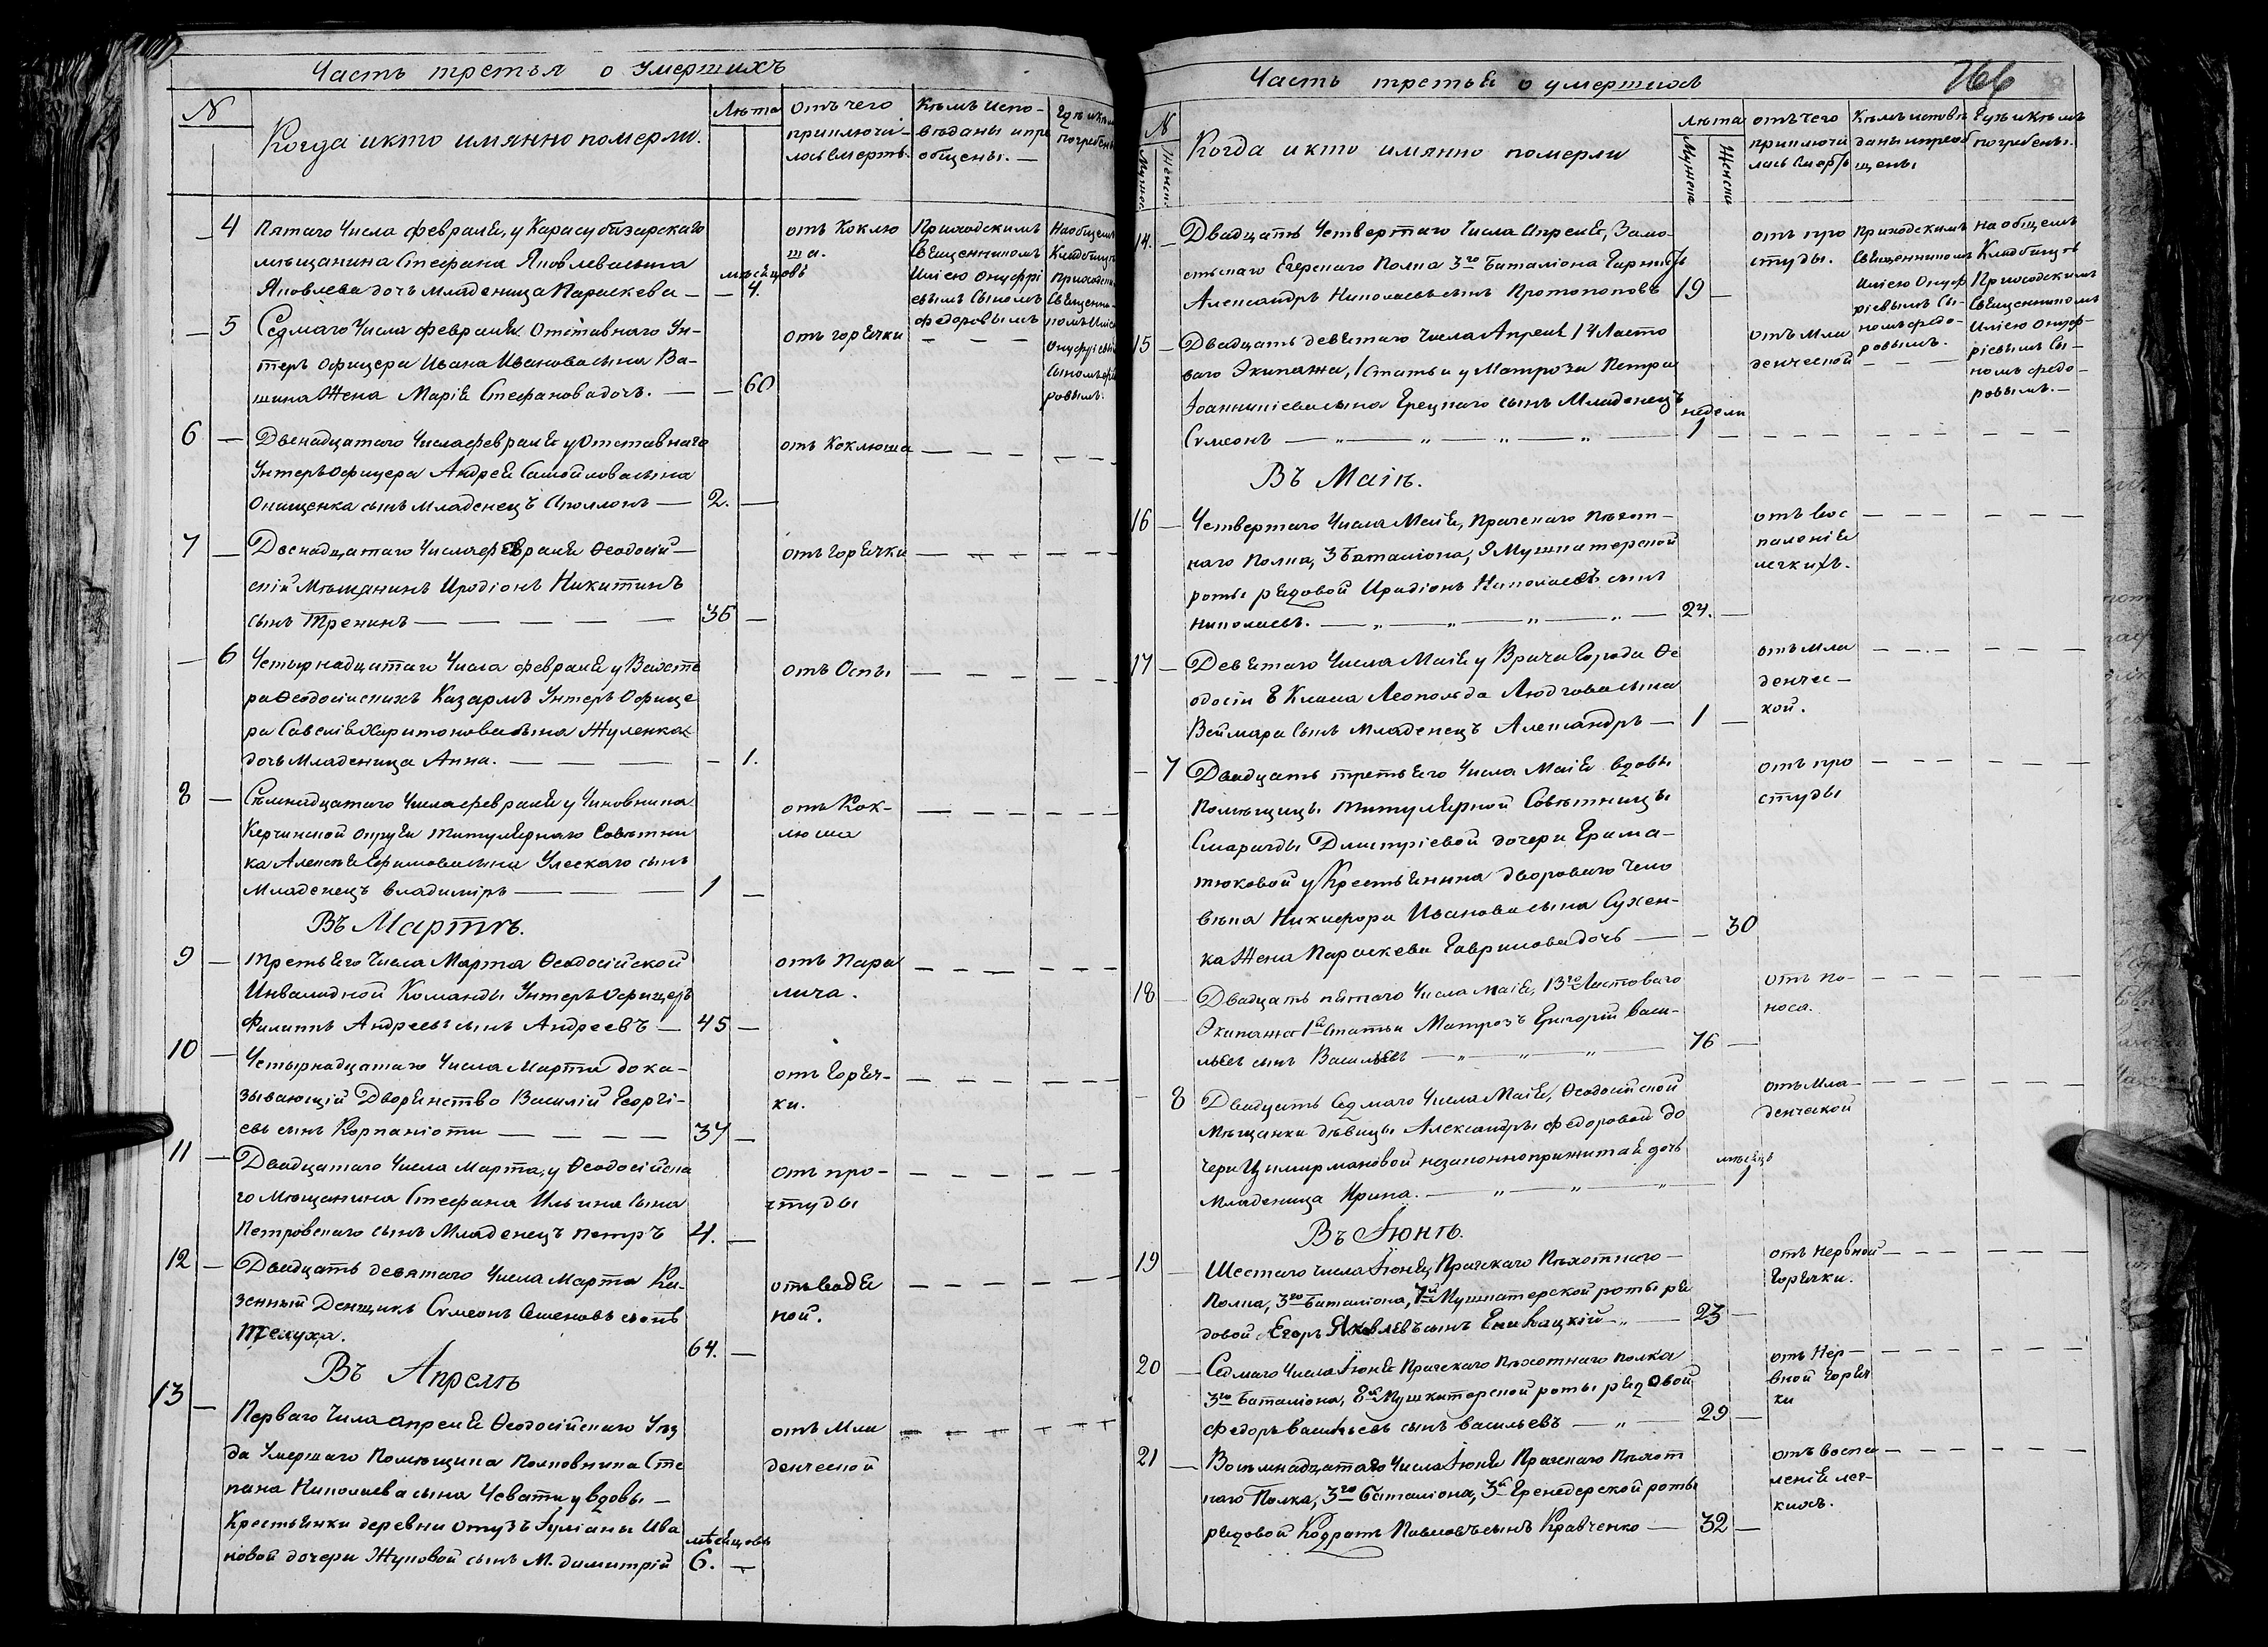 Часть третья о умершихъ
N
Когда и кто имянно померли.
Лѣта
отъ чего приключи-
лась смерть.
Кѣмъ испо-
вѣданы и прі
общены. —
Гдѣ и кѣмъ
погребены
4
Пятаго Числа февраля, у Карасубазарскаго
мѣщанина Стефана Яковлева сына
Яковлева дочь младеница Параскева —
мѣсяцовъ
— 4.
отъ Коклю
ша.
Приходскимъ
Священникомъ
Илiею Онуфрi
евымъ Сыномъ
Федоровымъ
На общемъ
Кладбищѣ
Приходским
Священни-
комъ Илiею
Онуфрiевым
Сыномъ Фед
ровымъ.
— 5
Седмаго Числа февраля Отставнаго Ун-
теръ офицера Ивана Иванова сына Ва-
шина Жена Марiя Стефанова дочь. —
— 60
отъ горячки
— — —
6 —
Двенадцатаго Числа февраля у Отставнаго
Унтеръ офицера Андрея Самойлова сына
Онищенка сынъ младенецъ Аполлонъ —
2. —
отъ Коклюша
— — — — —
7 —
Двенадцатаго Числа февраля Ѳеодосiй-
скiй Мѣщанинъ Иродiонъ Никитинъ
сынъ Тренинъ — — — — —
35 —
отъ горячки
— — — — —
— 6
Четырнадцатаго Числа февраля у Вахте
ра Ѳеодосiискихъ Казармъ Унтеръ Офице
ра Савелiя Харитонова сына Жуленка
дочь Младеница Анна. — — —
— 1.
отъ Оспы
— — — — —
8 —
Семнадцатаго Числа февраля у Чиновника
Керчинской округи титулярнаго Совѣтни
ка Алексѣя Ефимова сына Улескаго сынъ
Младенецъ владимiръ — — —
1 —
отъ Кок-
люша
— — — — —
Въ Мартѣ.
9 —
Третьяго Числа Марта Ѳеодосiйской
Инвалидной Команды Унтеръ Офицеръ
Филиппъ Андреевъ сынъ Андреевъ —
45 —
отъ Пара
лича.
— — — — —
10 —
Четырнадцатаго Числа Марта дока-
зывающiй Дворянство Василiй Георгi-
евъ сынъ Корпанiоти — — — —
37 —
отъ Горяч-
ки.
— — — — —
11 —
Двадцатаго Числа Марта, у Ѳеодосiйска
го Мѣщанина Стефана Ильина Сына
Петровскаго сынъ Младенецъ петръ
4. —
отъ про-
студы
— — — — —
12 —
Двадцать девятаго Числа Марта Ка-
зенный Денщикъ Сѵмеонъ Семеновъ сынъ
Телуха.
64. —
отъ водя
ной.
— — — — —
Въ Апрелѣ
13 —
Перваго Чила апреля Ѳеодосiйскаго Уѣз
да Умершаго Помѣщика Полковника Сте
пана Николаева сына Чевати у вдовы —
Крестьянки деревни Отузъ Iулiаны Ива
новой дочери Жуковой сынъ М. димитрiй
мѣсяцовъ
6. —
отъ Мла
денческой
— — — — —
Часть третья о умершихъ
766
N
Мужес.
Женск.
Когда и кто имянно померли
Лѣта
Мужеска
Женска
отъ чего
приключи
лась смерть
Кѣмъ исповѣ
даны и преоб
щены
Гдѣ и кѣмъ
погребены.
14. —
Двадцать Четвертаго Числа Апреля, Замо-
стьскаго Егерскаго Полка 3го Баталiона Гарнистъ
Александръ Николаевъ сынъ Протопоповъ
19 —
отъ про
студы.
Приходскимъ
Священникомъ
Илiею Онуф
рiевымъ Сы-
номъ Федо-
ровымъ.
На общемъ
Кладбищѣ
Приходскимъ
Священникомъ
Илiею Онуф-
рiевымъ Сы-
номъ Федо-
ровымъ. —
15 —
Двадцать девятаго Числа Апреля 14 Ласто
ваго Экипажа, 1 статьи у Матроза Петра
Iоанникiева сына Грецкаго сынъ Младенецъ
Сѵмеонъ — „ — „ — „ — „ —
недели
1 —
отъ Мла
денческой
— —
Въ Маiѣ.
16 —
Четвертаго Числа Маiя, Пражскаго Пѣхот-
наго Полка, 3 Баталiона, 9 Мушкатерской
роты рядовой Иродiонъ Николаевъ сынъ
Николаевъ. — „ — „ — „ — „ —
24. —
отъ вос
паленiя
легкихъ.
— — — — —
17 —
Девятаго Числа Маiя у Врача Города Ѳе
одосiи 8 Класа Леопольда Людвова сына
Веймара Сынъ Младенецъ Александръ —
1 —
отъ мла
денчес-
кой.
— — — — —
— 7
Двадцать третьяго Числа Маiя вдовы
Помѣщицы титулярной Совѣтницы
Смарагды Дмитрiевой дочери Грама-
тюковой у Крестьянина дворового Чело
вѣка Никифора Иванова сына Сухен-
ка Жена Параскева Гаврилова дочь —
— 30
отъ про
студы
— — — — —
18 —
Двадцать пятаго Числа маiя, 13го Ластоваго
Экипажа 1й статьи Матрозъ Григорiй Васи-
льевъ сынъ Васильевъ — „ — „ — „ —
76 —
отъ по-
носа.
— — — — —
— 8
Двадцать Седмаго Числа Маiя, Ѳеодосiйской
Мѣщанки дѣвицы Александры федоровой до
чери Цимирмановой незаконноприжитая дочь
Младеница Ирина. — „ — „ — „ —
мѣсяцъ
1
отъ Мла-
денческой
— — — — —
Въ Iюнѣ.
19 —
Шестаго числа Iюня, Пражскаго Пѣхотнаго —
Полка, 3го Баталiона, 7й Мушкатерской роты ря
довой Егоръ Яковлевъ сынъ Енивацкiй — „ —
23 —
отъ нервной
Горячки.
— — — — —
20 —
Седмаго Числа Iюня Пражскаго Пѣхотнаго полка
3го Баталiона, 8й Мушкатерской роты рядовой
Федоръ Васильевъ сынъ васильевъ — „ —
29 —
отъ Нер-
вной Горяч
ки
— — — — —
21 —
Восемнадцатаго Числа Iюня Пражскаго Пѣхот
наго Полка, 3го баталiона, 3й Гренедерской роты
рядовой Кодратъ Павловъ сынъ Кравченко —
32 —
отъ воспа
ленiя лег-
кихъ.
— — — — —